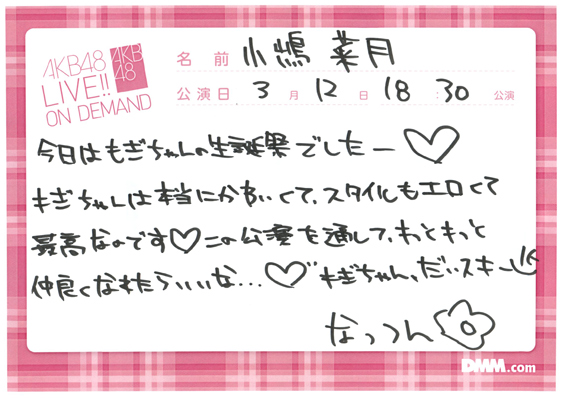 AKB48
LIVE!!
ON DEMAND
AKB
48
名前 小嶋菜月
公演日 3月12日 18:30 公演
今日はもぎちゃんの生誕祭でしたー♡
もぎちゃんは本当にかわいくて、スタイルもエロくて
最高なのです♡この公演を通して、もっともっと
仲良くなれたらいいな…♡もぎちゃん、だいスキー
なっつん
DMM.com